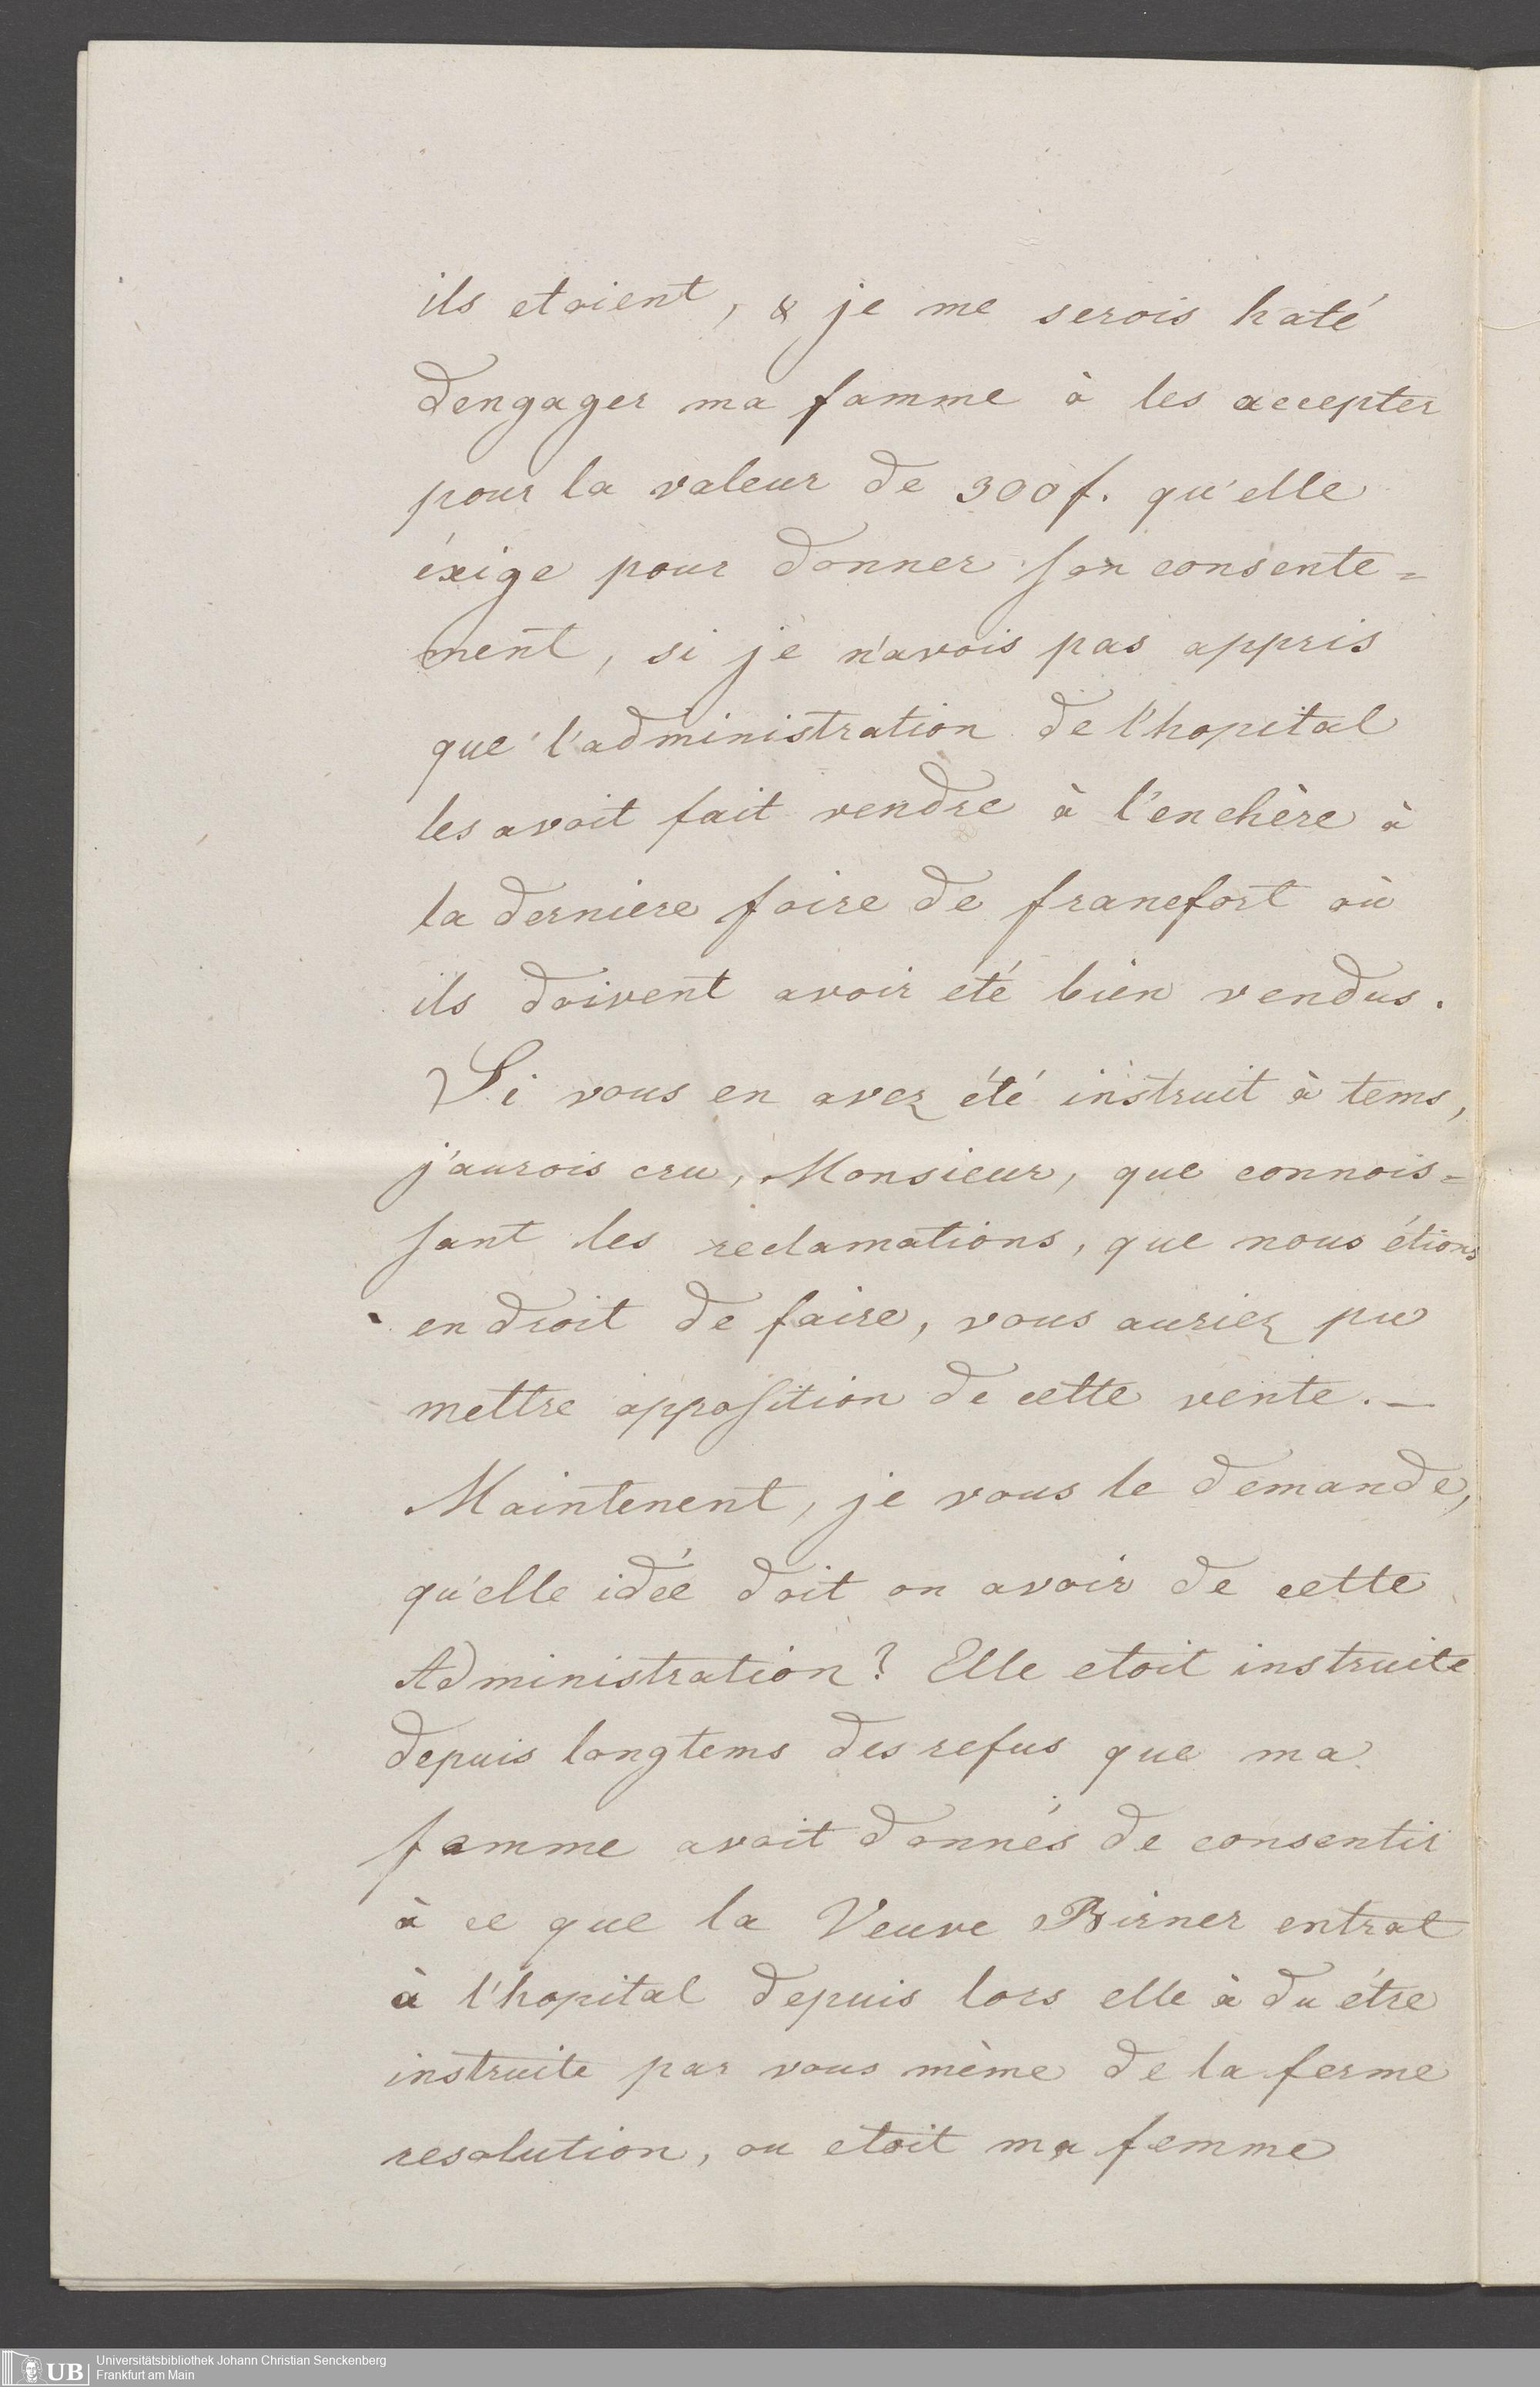 ils etoient, & je me serois haté
d'engager ma famme à les accepter
pour la valeur de 300 f. qu'elle
éxige pour donner son consente=
ment, si je n'avois pas appris
que l'administration de l'hopital
les avoit fait vendre à l'enchère à
la derniere foire de francfort où
ils doivent avoir été bien vendus.
Si vous en avez été instruit à tems,
j'aurois cru, Monsieur, que connois=
sant les reclamations, que nous étions
en droit de faire, vous auriez pu
mettre opposition de cette vente. —
Maintenent, je vous le demande,
qu'elle idée doit on avoir de cette
Administration? Elle etoit instruite
depuis longtems des refus que ma
famme avoit donnés de consentir
à ce que la Veuve Birner entrat
à l'hopital depuis lors elle à du étre
instruite par vous mème de la ferme
resolution, ou etoit ma femme
UB
Universitätsbibliothek Johann Christian Senckenberg
Frankfurt am Main